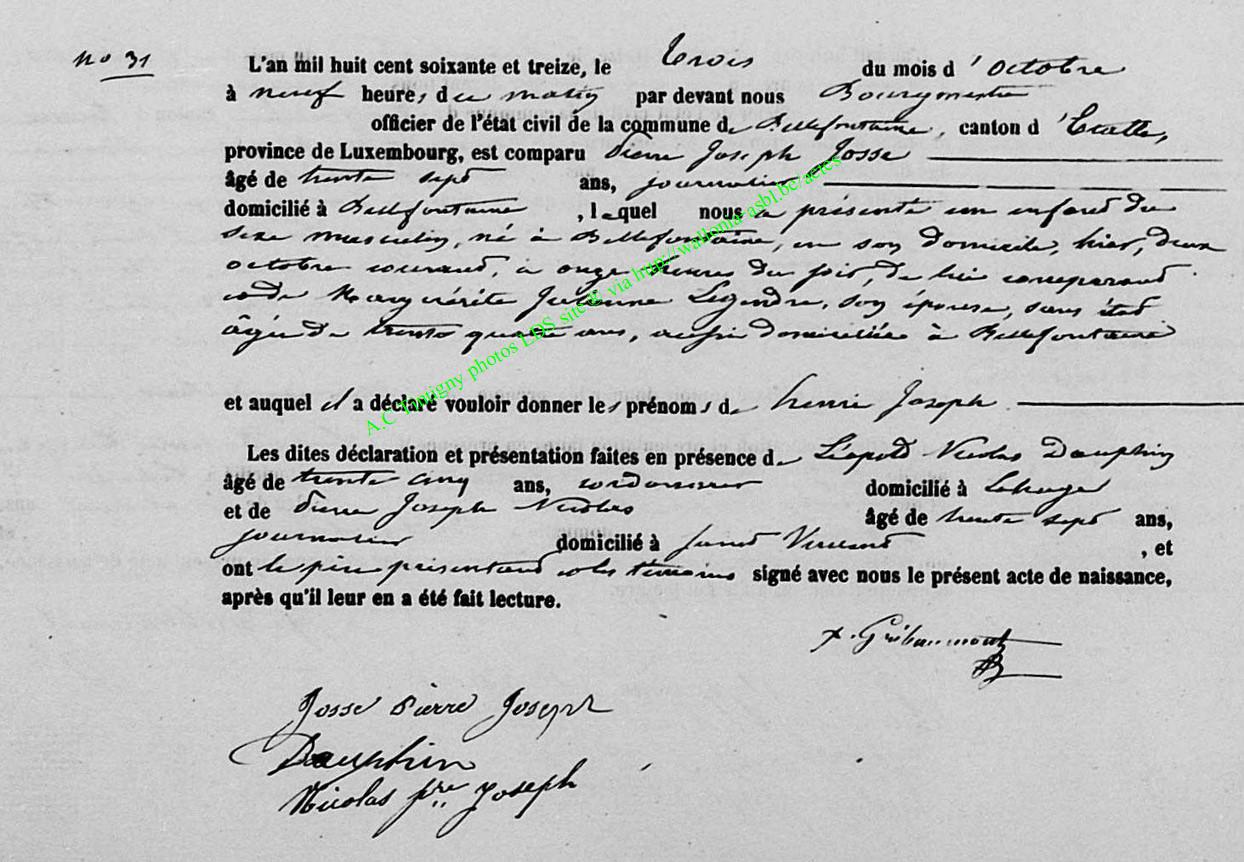 no 31
L'an mil huit cent soixante et treize, le trois du mois d'Octobre
à neuf heures du matin par devant nous Bourgmestre
officier de l'état civil de la commune de Bellefontaine, canton d'Etalle,
province de Luxembourg, est comparu Pierre Joseph Josse
âgé de trente sept ans, journalier
domicilié à Bellefontaine, lequel nous a présenté un enfant du
sexe masculin, né à Bellefontaine, en son domicile, hier, deux
octobre courant, à onze heures du soir, de lui comparant
et de Marguérite Julienne Legendre, son épouse, sans état
âgée de trente quatre ans, aussi domiciliée à Bellefontaine
et auquel il a déclaré vouloir donner les prénoms de henri Joseph
Les dites déclaration et présentation faites en présence de Léopold Nicolas Dauphin
âgé de trente cinq ans, cordonnier domicilié à Lahage
et de Pierre Joseph Nicolas âgé de trente sept ans,
journalier domicilié à Saint Vincent, et
ont le père présentant et les témoins signé avec nous le présent acte de naissance,
après qu'il leur en a été fait lecture.
Gribaumont
Josse Pierre Joseph
Dauphin
Nicolas pre Joseph
A.C Tintigny photos LDS site & via http://wallonia-asbl.be/actes